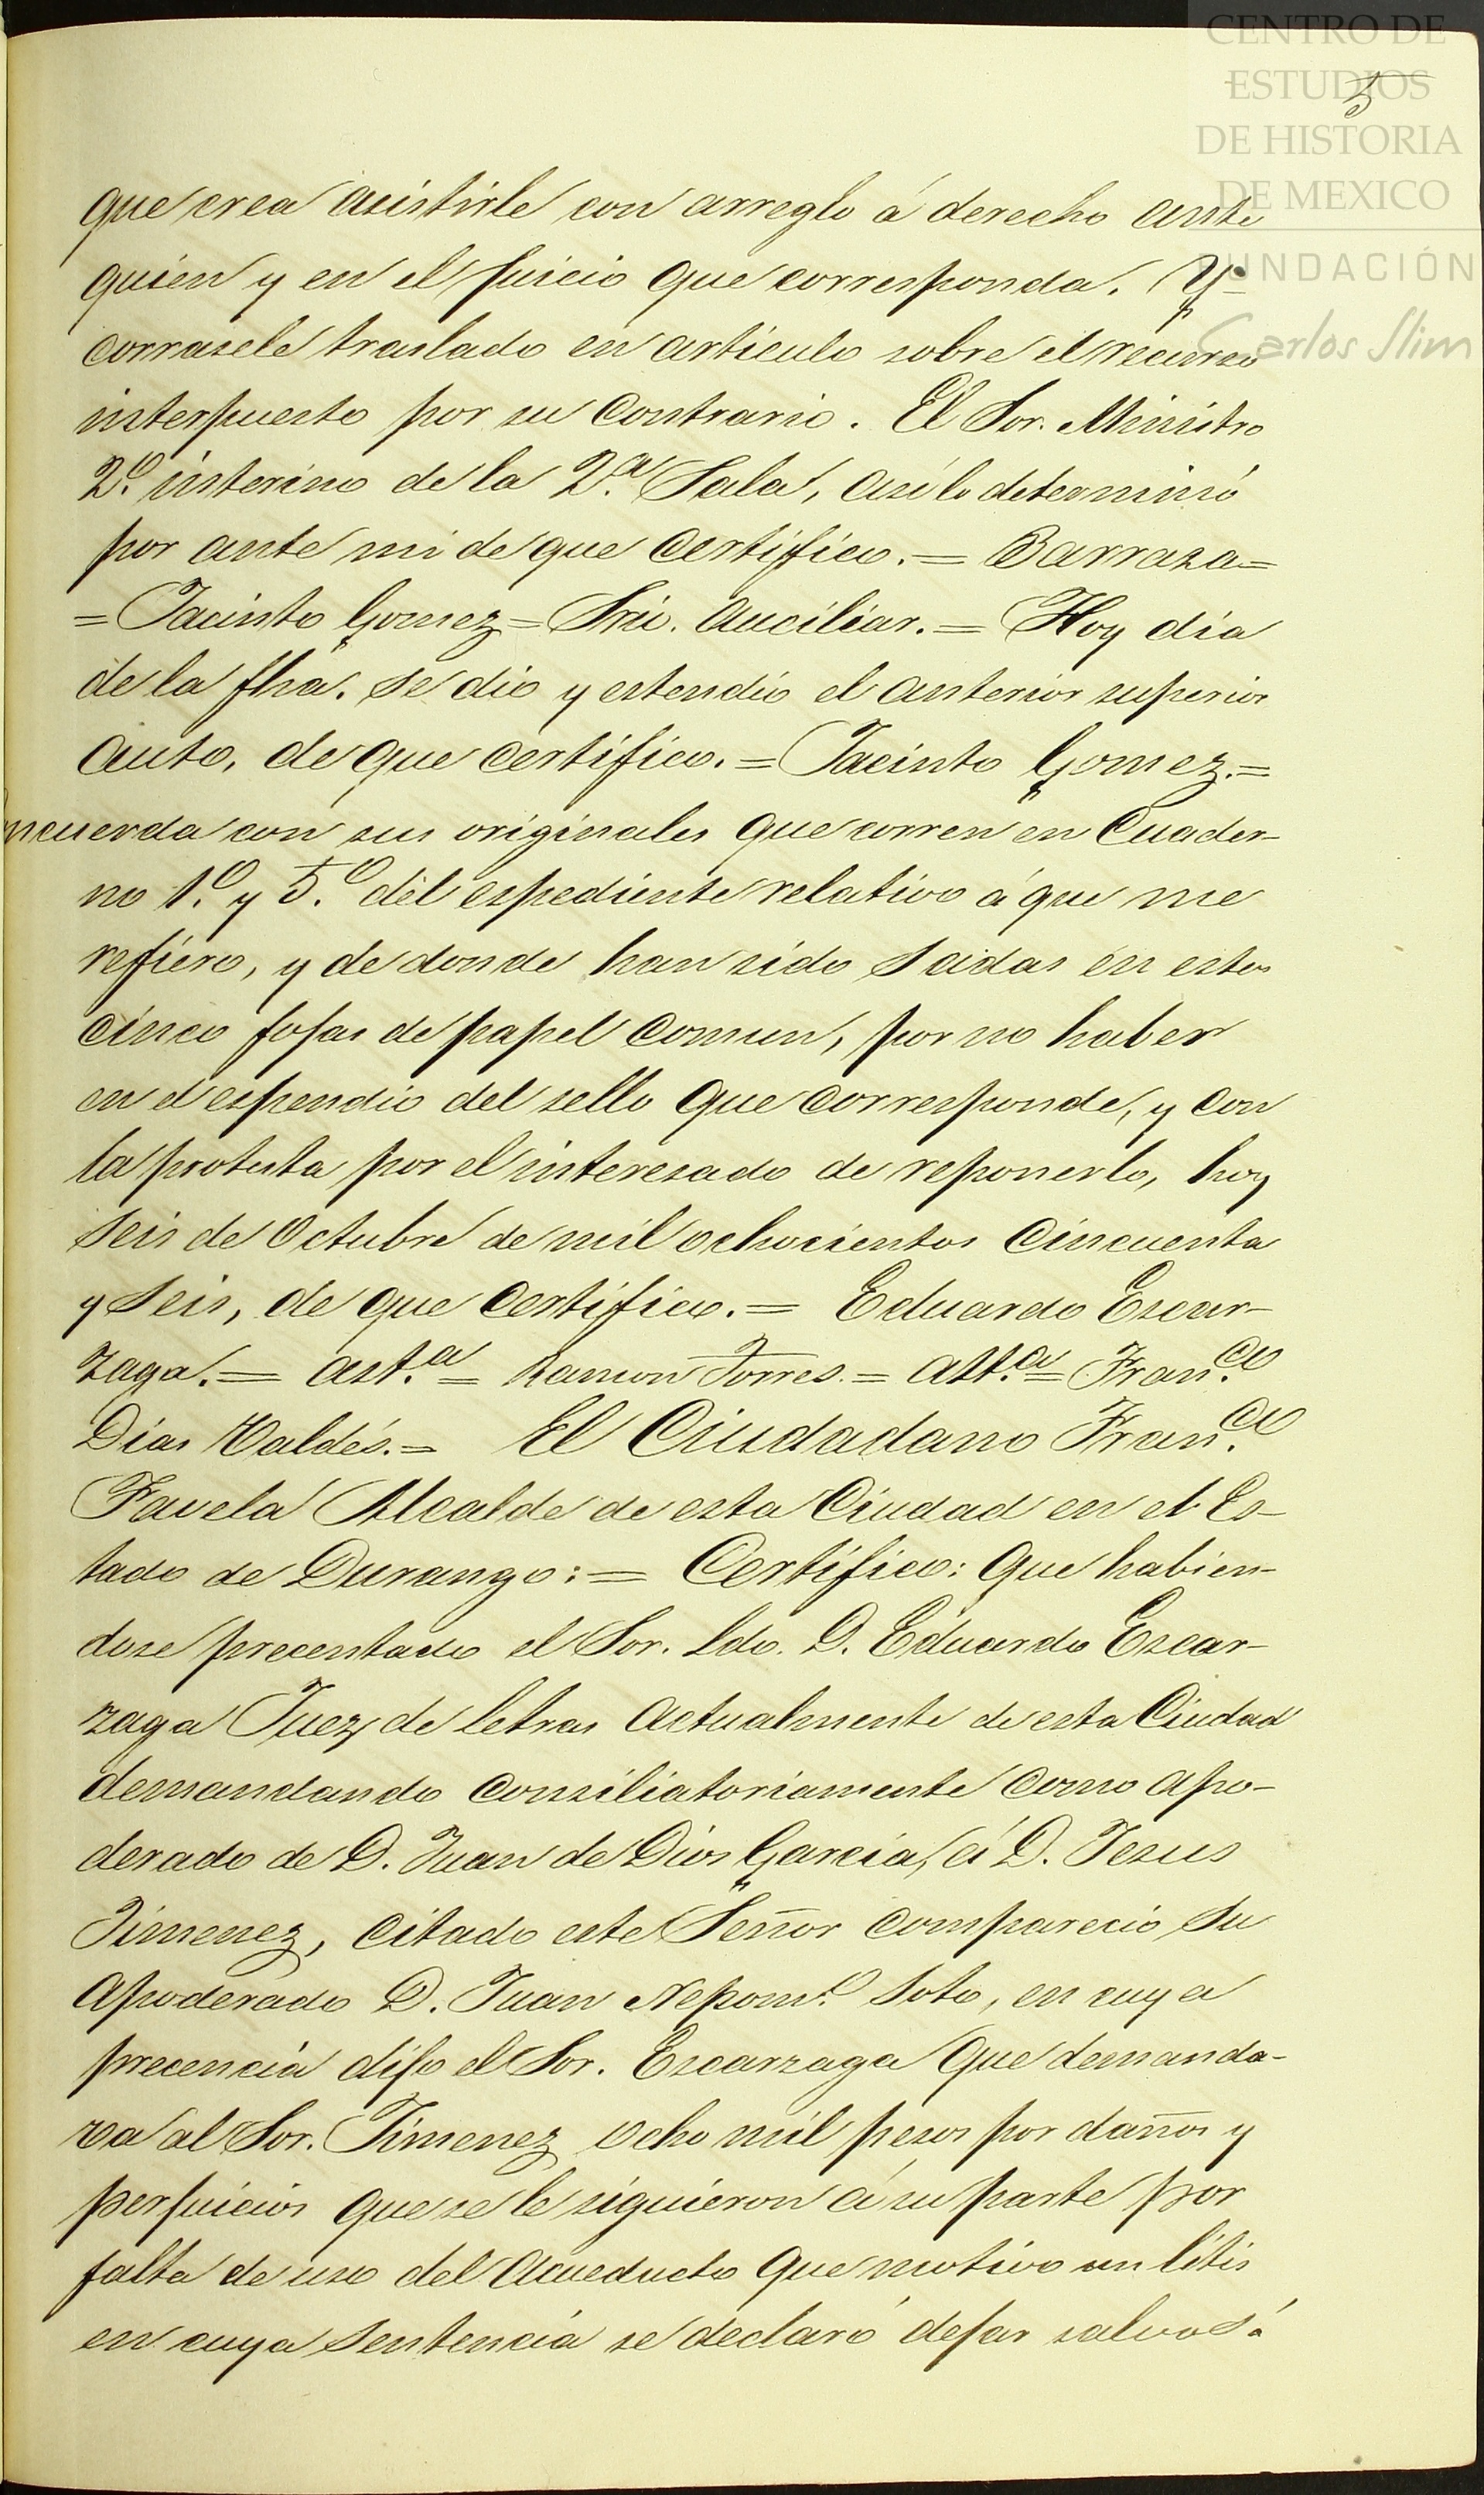 CENTRO DE
ESTUDIOS
DE HISTORIA
DE MEXICO
FUNDACIÓN
Carlos Slim
5
que crea asistirle con arreglo á derecho ante
quien y en el juicio que corresponda. Y
corrasele traslado en articulo sobre el recurso
interpuesto por su contrario. El Sor. Ministro
2º. interino de la 2ª. Sala, asi lo determinó
por ante mi de que certifico. = Barraza =
= Jacinto Gomez = Srio. Auciliar. = Hoy dia
de la fha. se dio y estendio el anterior superior
auto, de que certifico. = Jacinto Gomez. =
ncuerda con sus originales que corren en Cuader-
no 1º. y 5º. del espediente relativo á que me
refiero, y de donde han sido sacadas en estas
cinco fojas de papel comun, por no haber
en el espendio del sello que corresponde, y con
la protesta por el interesado de reponerlo, hoy
seis de Octubre de mil ochocientos cincuenta
y seis, de que certifico. = Eduardo Escar-
zaga. = ast.ª = Ramon Torres. = ast.ª = Fran.co
Dias Valdés. = El Ciudadano Fran.co
Favela Alcalde de esta Ciudad en el Es-
tado de Durango: = Certifico: Que habien-
dose precentado el Sor. Ldo. D. Eduardo Escar-
zaga Juez de letras actualmente de esta Ciudad
demandando consiliatoriamente como apo-
derado de D. Juan de Dios Garcia, á D. Jesus
Jimenez, citado este Señor comparecio su
apoderado D. Juan Nepom.º Soto, en cuya
precencia dijo el Sor. Escarzaga que demanda-
va al Sor. Jimenez ocho mil pesos por daños y
perjuicios que se le siguieron á su parte por
falta de uso del acueducto que motivo un litis
en cuya sentencia se declaró dejar salvos á